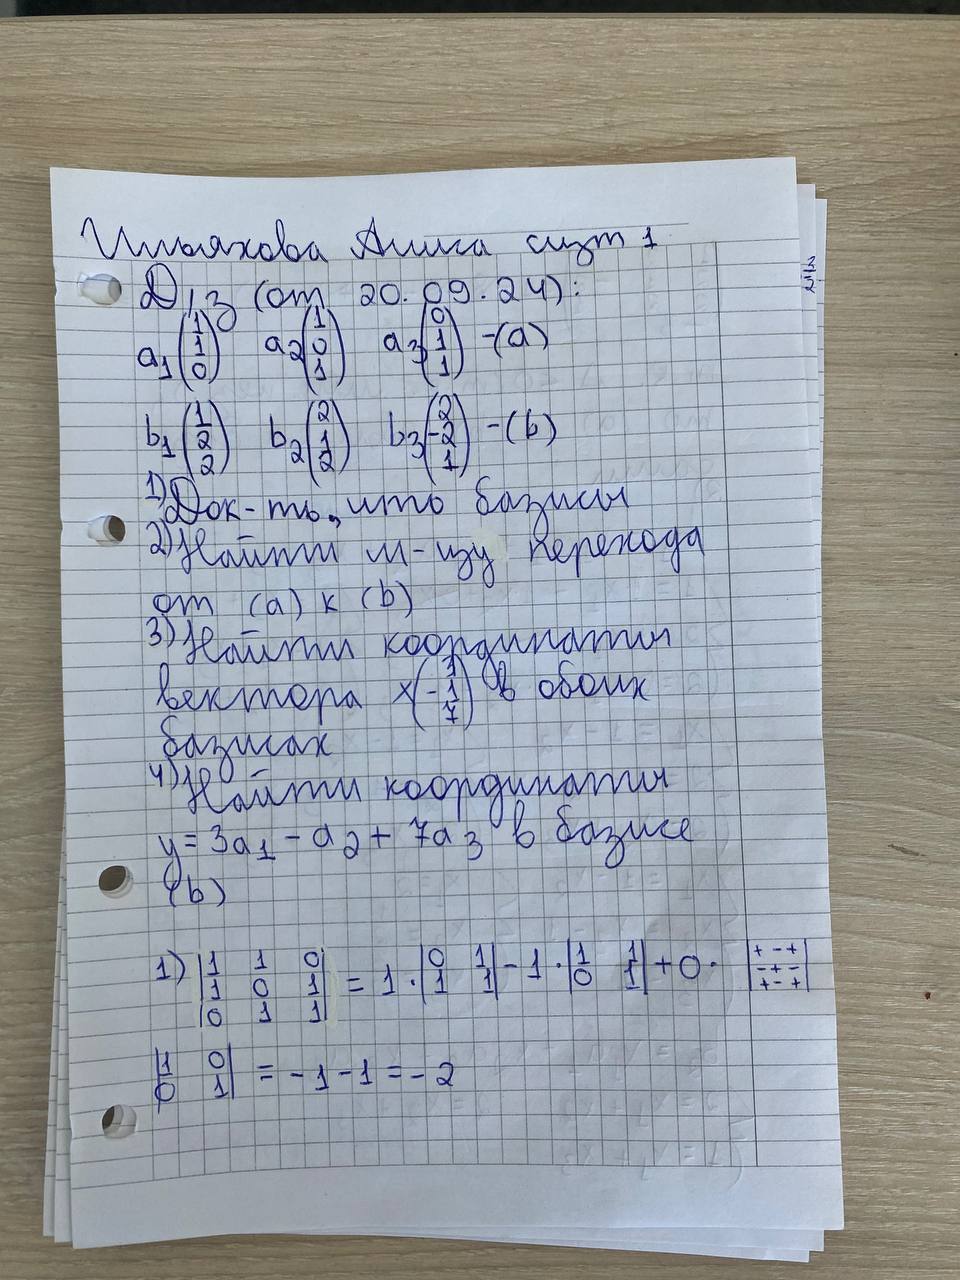 Ильяхова Алиса сизт 1
Д/З (от 20.09.24):
a1 (1 1 0) a2 (1 0 1) a3 (0 1 1) -(a)
b1 (1 2 2) b2 (2 1 2) b3 (2 -2 1) -(b)
1) Док-ть, что базисы
2) Найти м-цу перехода
от (a) к (b)
3) Найти координаты
вектора x (1 -1 7) в обоих
базисах
4) Найти координаты
y = 3a1 - a2 + 7a3 в базисе
(b)
1) |1 1 0| = 1 · |0 1| - 1 · |1 1| + 0 · |+ - +|
|1 0 1| |1 1| |0 1| |- + -|
|0 1 1| |+ - +|
|1 0| = -1 -1 = -2
|0 1|
3/2